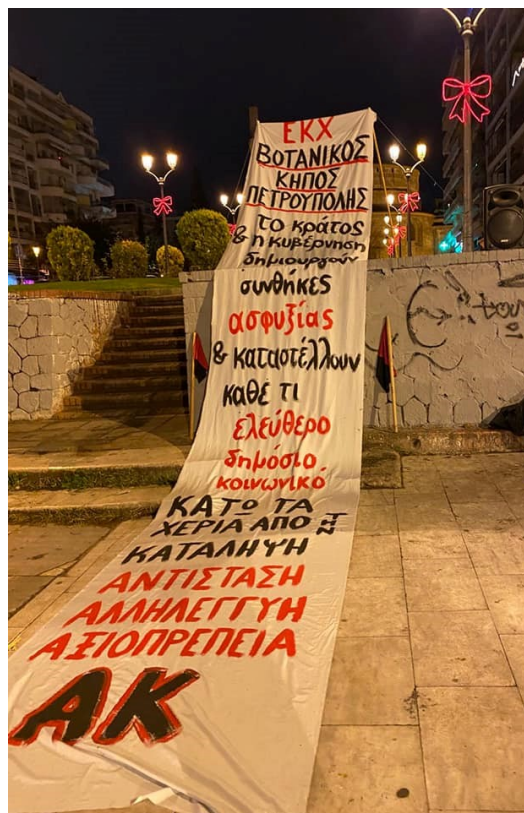 ΕΚΧ
ΒΟΤΑΝΙΚΟΣ
ΚΗΠΟΣ
ΠΕΤΡΟΥΠΟΛΗΣ
το κράτος
& η κυβέρνηση
δημιουργούν
συνθήκες
ασφυξίας
& καταστέλλουν
καθέ τι
ελεύθερο
δημόσιο
κοινωνικό
ΚΑΤω ΤΑ
ΧΕΡΙΑ ΑΠΟ ΤΗΝ
ΚΑΤΑΛΗΨΗ
ΑΝΤΙΣΤΑΣΗ
ΑΛΛΗΛΕΓΓΥΗ
ΑΞΙΟΠΡΕΠΕΙΑ
ΑΚ